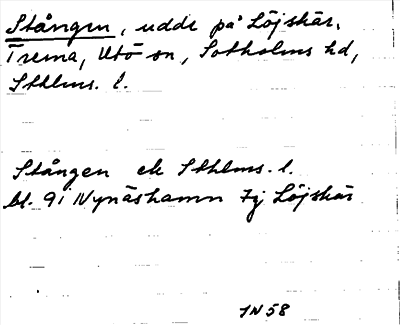 Stången, udde på Löjskär,
Trema, Utö sn, Sotholms hd,
Sthlms. l.
Stången ek Sthlms. l.
bl. 9i Nynäshamn 7j Löjskär
JN 58